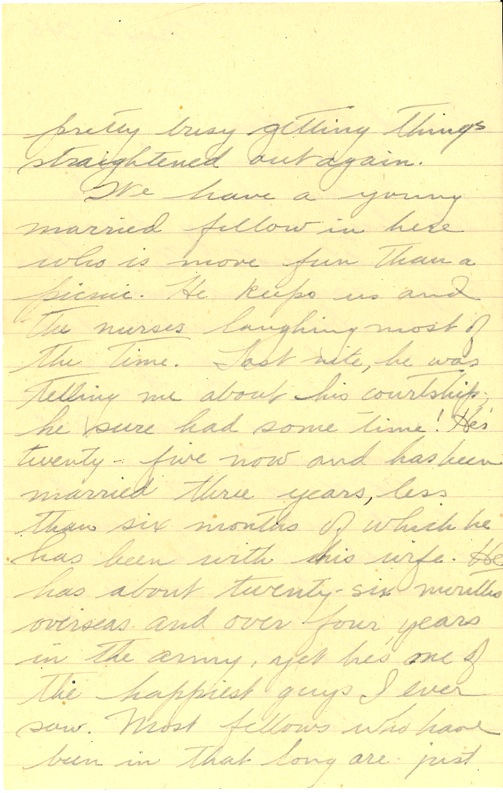 pretty busy getting things
straightened out again.
We have a young
married fellow in here
who is more fun than a
picnic. He keeps us and
the nurses laughing most of
the time. Last nite, he was
telling me about his courtship,
he sure had some time! He's
twenty-five now and has been
married three years, less
than six months of which he
has been with his wife. He
has about twenty-six months
overseas and over four years
in the army, yet he's one of
the happiest guys I ever
saw. Most fellows who have
been in that long are just